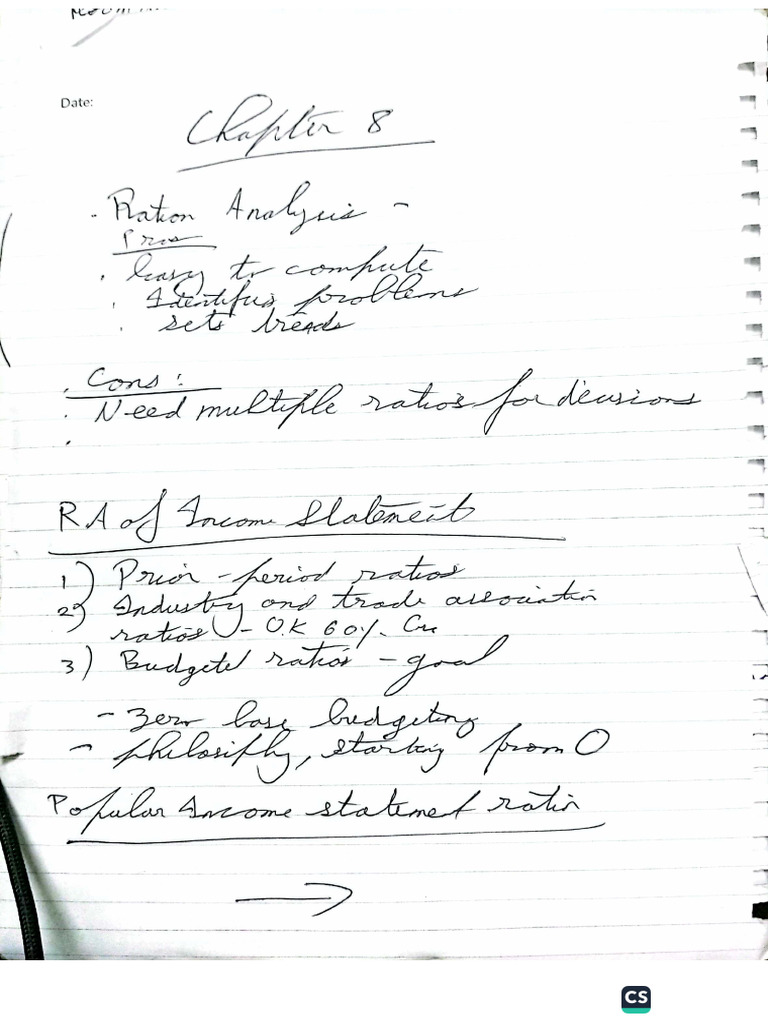 Date:
Chapter 8
. Ration Analysis -
Pros
. Easy to compute
. Identifies problems
. sets treads
. Cons :
. Need multiple ratios for decisions
.
RA of Income Statement
1) Prior - period ratios
2) Industry and trade association
ratios - O.K 60%.
3) Budgeted ratios - goal
- zero base budgeting
- philosiphy, starting from 0
Popular Income statement ratio
→
CS